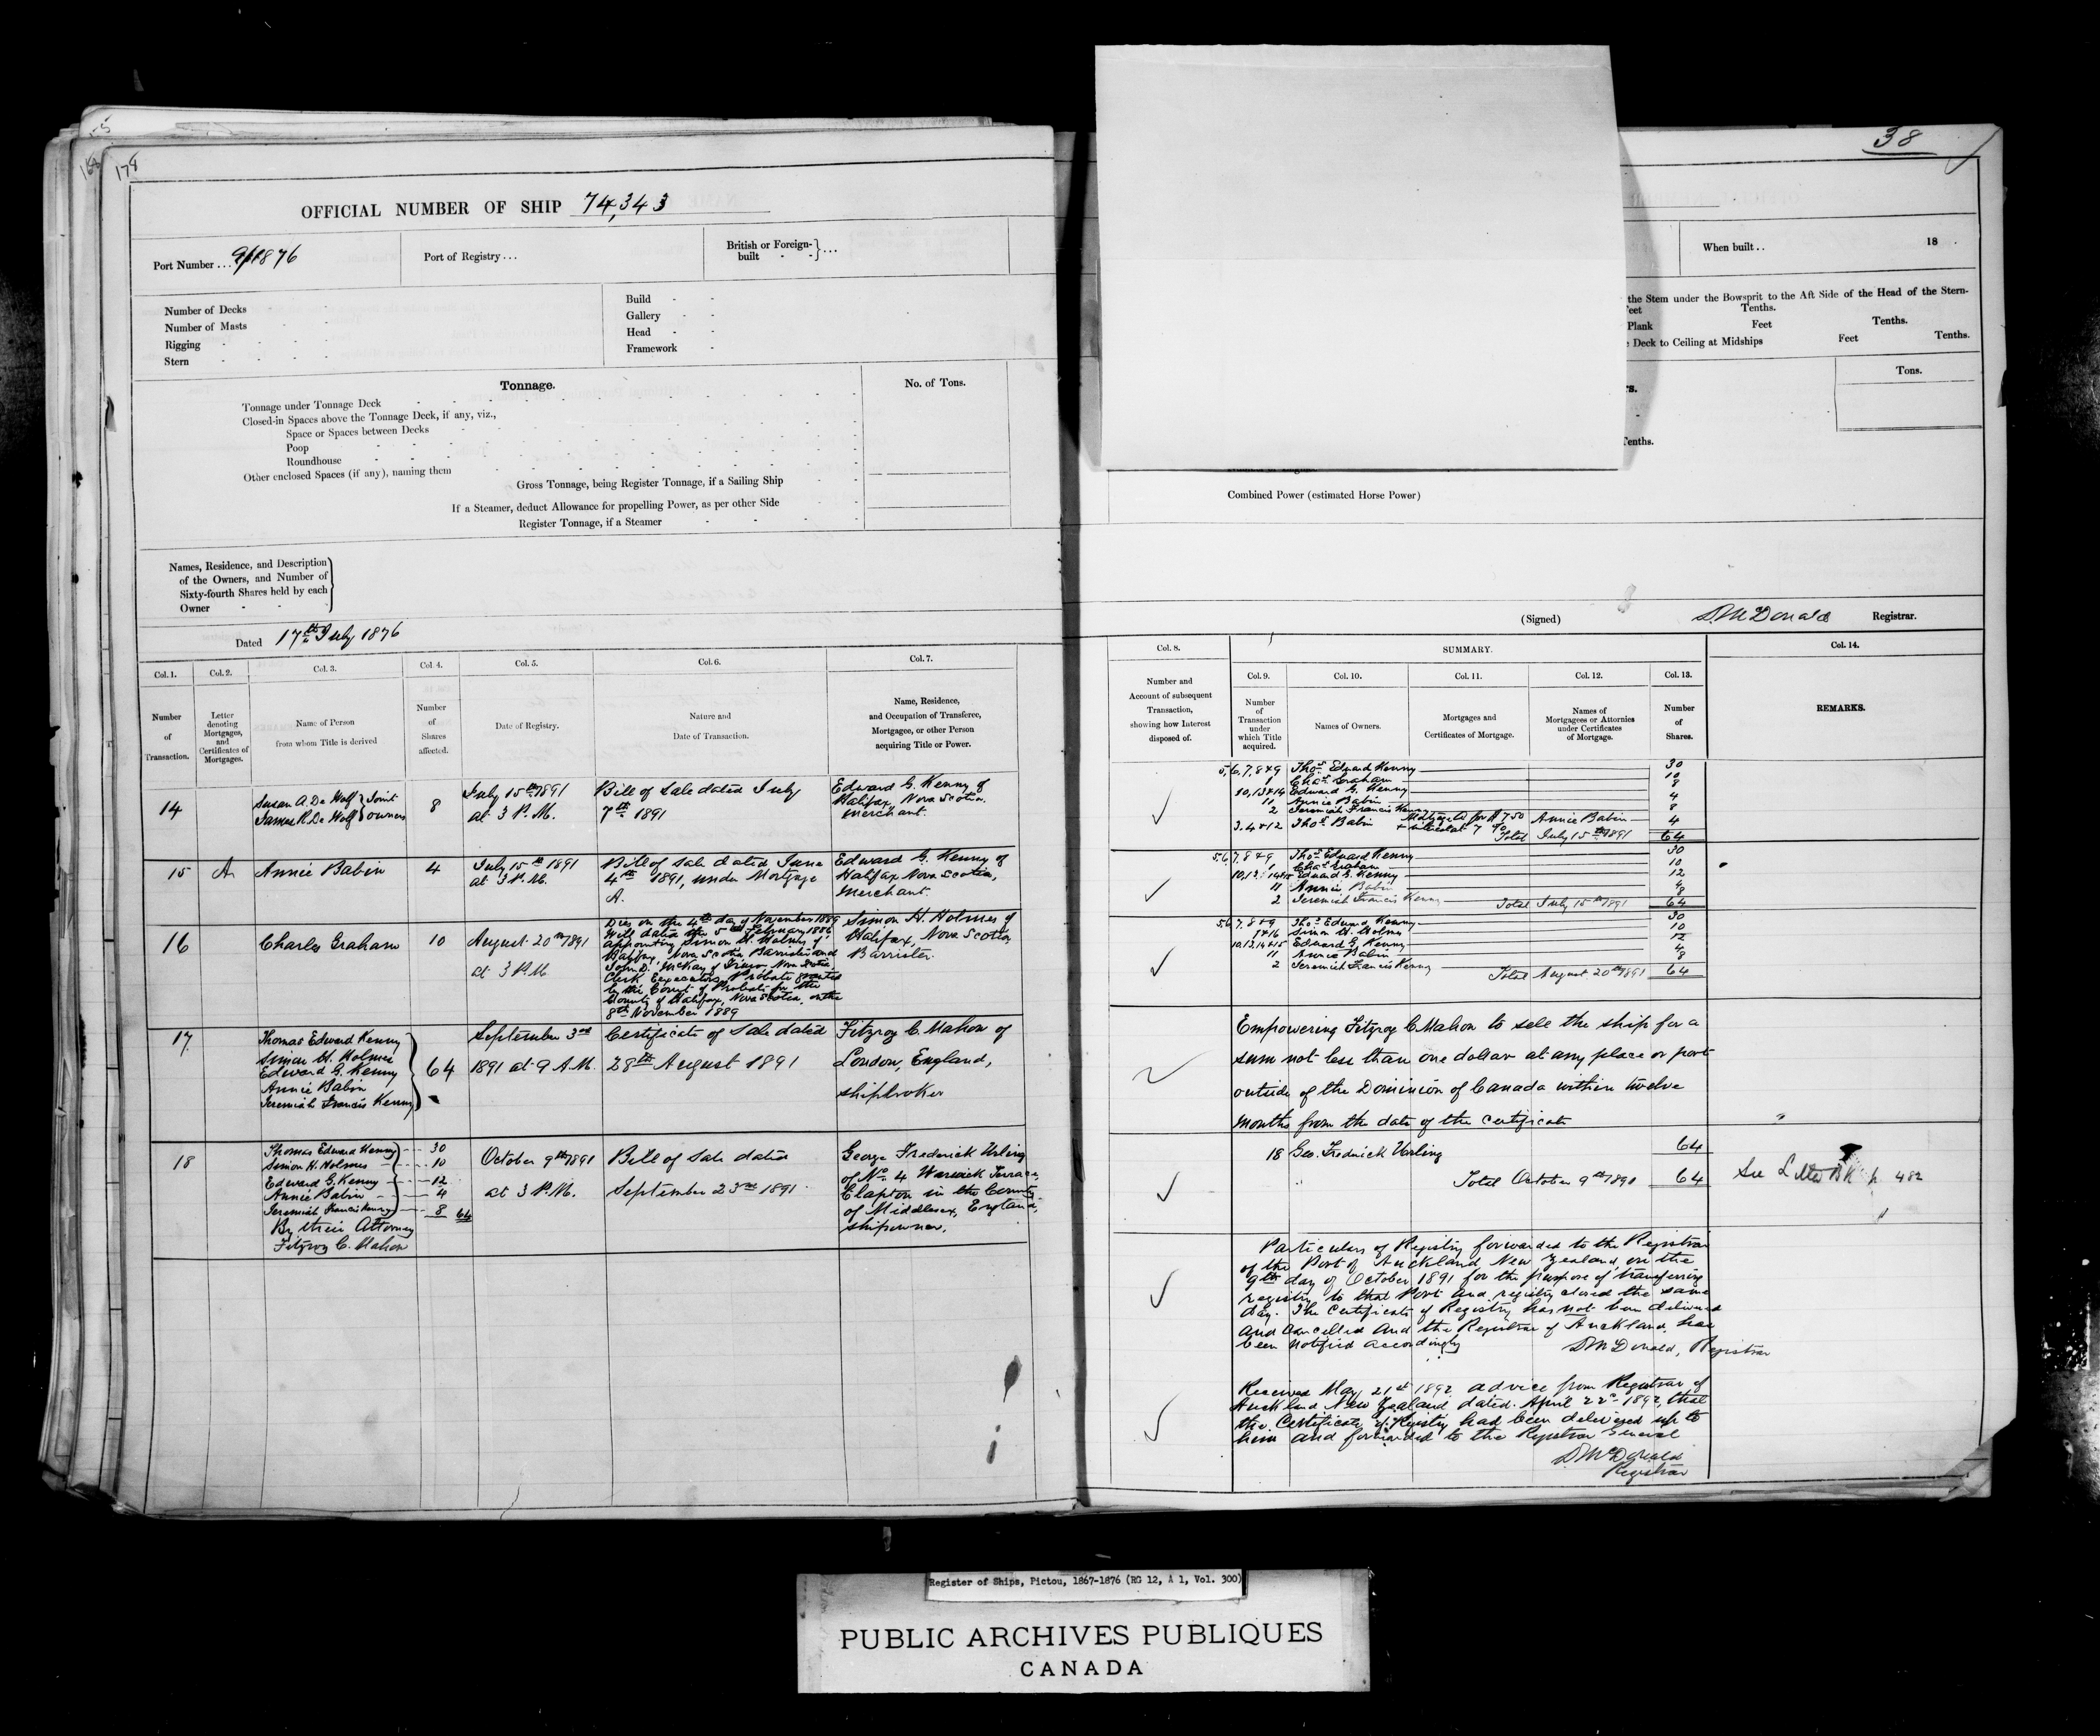 178
38
OFFICIAL NUMBER OF SHIP 74,343
Port Number ... 9/1876
Port of Registry ...
British or Foreign-built } ...
When built .. 18 .
Number of Decks
Number of Masts
Rigging
Stern
Build
Gallery
Head
Framework
the Stem under the Bowsprit to the Aft Side of the Head of the Stern-
Feet Tenths.
Plank Feet Tenths.
Deck to Ceiling at Midships Feet Tenths.
Tonnage.
No. of Tons.
Tons.
Tonnage under Tonnage Deck
Closed-in Spaces above the Tonnage Deck, if any, viz.,
Space or Spaces between Decks
Poop
Roundhouse
Other enclosed Spaces (if any), naming them
Gross Tonnage, being Register Tonnage, if a Sailing Ship
If a Steamer, deduct Allowance for propelling Power, as per other Side
Register Tonnage, if a Steamer
Tenths.
Combined Power (estimated Horse Power)
Names, Residence, and Description
of the Owners, and Number of
Sixty-fourth Shares held by each
Owner
Dated 17th July 1876
(Signed) D McDonald Registrar.
Col. 1. Col. 2. Col. 3. Col. 4. Col. 5. Col. 6. Col. 7.
Number of Transaction.
Letter denoting Mortgages, and Certificates of Mortgages.
Name of Person from whom Title is derived
Number of Shares affected.
Date of Registry.
Nature and Date of Transaction.
Name, Residence, and Occupation of Transferee, Mortgagee, or other Person acquiring Title or Power.
Col. 8. SUMMARY. Col. 14.
Col. 9. Col. 10. Col. 11. Col. 12. Col. 13.
Number and Account of subsequent Transaction, showing how Interest disposed of.
Number of Transaction under which Title acquired.
Names of Owners.
Mortgages and Certificates of Mortgage.
Names of Mortgagees or Attornies under Certificates of Mortgage.
Number of Shares.
REMARKS.
14
Susan A. De Wolf } Joint
James R De Wolf } owners
8
July 15th 1891
at 3 P.M.
Bill of Sale dated July
7th 1891
Edward G. Kenny of
Halifax, Nova Scotia,
merchant.
5,6,7,8+9 Thos. Edward Kenny 30
1 Chas. Graham 10
10,13+14 Edward G. Kenny 8
11 Annie Babin 4
2 Jeremiah Francis Kenny 8
3.4+12 Thos. Babin Mortgage A for $750 Annie Babin 4
+ interest at 7 %
Total July 15th 1891 64
15 A Annie Babin 4
July 15th 1891
at 3 P.M.
Bill of Sale dated June
4th 1891, under Mortgage
A.
Edward G. Kenny of
Halifax Nova Scotia,
merchant.
5,6,7,8+9 Thos. Edward Kenny 30
1 Chas. Graham 10
10,13,14+15 Edward G. Kenny 12
11 Annie Babin 4
2 Jeremiah Francis Kenny 8
Total July 15th 1891 64
16 Charles Graham 10
August 20th 1891
at 3 P.M.
Died on the 4th day of November 1889
Will dated the 5th February 1886
appointing Simon H. Holmes of
Halifax, Nova Scotia Barrister and
John D. McKay of Nova Scotia
Clerk Executors, Probate granted
by the Court of Probate for the
County of Halifax, Nova Scotia, on the
8th November 1889
Simon H. Holmes of
Halifax, Nova Scotia
Barrister.
5,6,7,8+9 Thos. Edward Kenny 30
1+16 Simon H. Holmes 10
10,13,14+15 Edward G. Kenny 12
11 Annie Babin 4
2 Jeremiah Francis Kenny 8
Total August 20th 1891 64
17
Thomas Edward Kenny
Simon H. Holmes
Edward G. Kenny
Annie Babin
Jeremiah Francis Kenny
64
September 3rd
1891 at 9 A.M.
Certificate of Sale dated
28th August 1891
Fitzroy C. Mahon of
London, England,
shipbroker
Empowering Fitzroy C Mahon to sell the ship for a
sum not less than one dollar at any place or port
outside of the Dominion of Canada within twelve
months from the date of the certificate
18
Thomas Edward Kenny 30
Simon H. Holmes 10
Edward G. Kenny 12
Annie Babin 4
Jeremiah Francis Kenny 8 64
By their Attorney
Fitzroy C. Mahon
October 9th 1891
at 3 P.M.
Bill of Sale dated
September 23rd 1891
George Frederick Urling
of No. 4 Warwick Terrace
Clapton in the County
of Middlesex, England,
shipowner.
18 Geo. Fredrick Urling 64
Total October 9th 1891 64
See Letter BK p 482
Particulars of Registry forwarded to the Registrar
of the Port of Auckland New Zealand, on the
9th day of October 1891 for the purpose of transferring
registry to that Port and registry closed the same
day. The Certificate of Registry has not been delivered
and cancelled and the Registrar of Auckland has
been notified accordingly
D McDonald, Registrar
Received May 21st 1892 advice from Registrar of
Auckland New Zealand dated April 22nd 1892, that
the Certificate of Registry had been delivered up to
him and forwarded to the Registrar General
D McDonald
Registrar
Register of Ships, Pictou, 1867-1876 (RG 12, A 1, Vol. 300)
PUBLIC ARCHIVES PUBLIQUES
CANADA